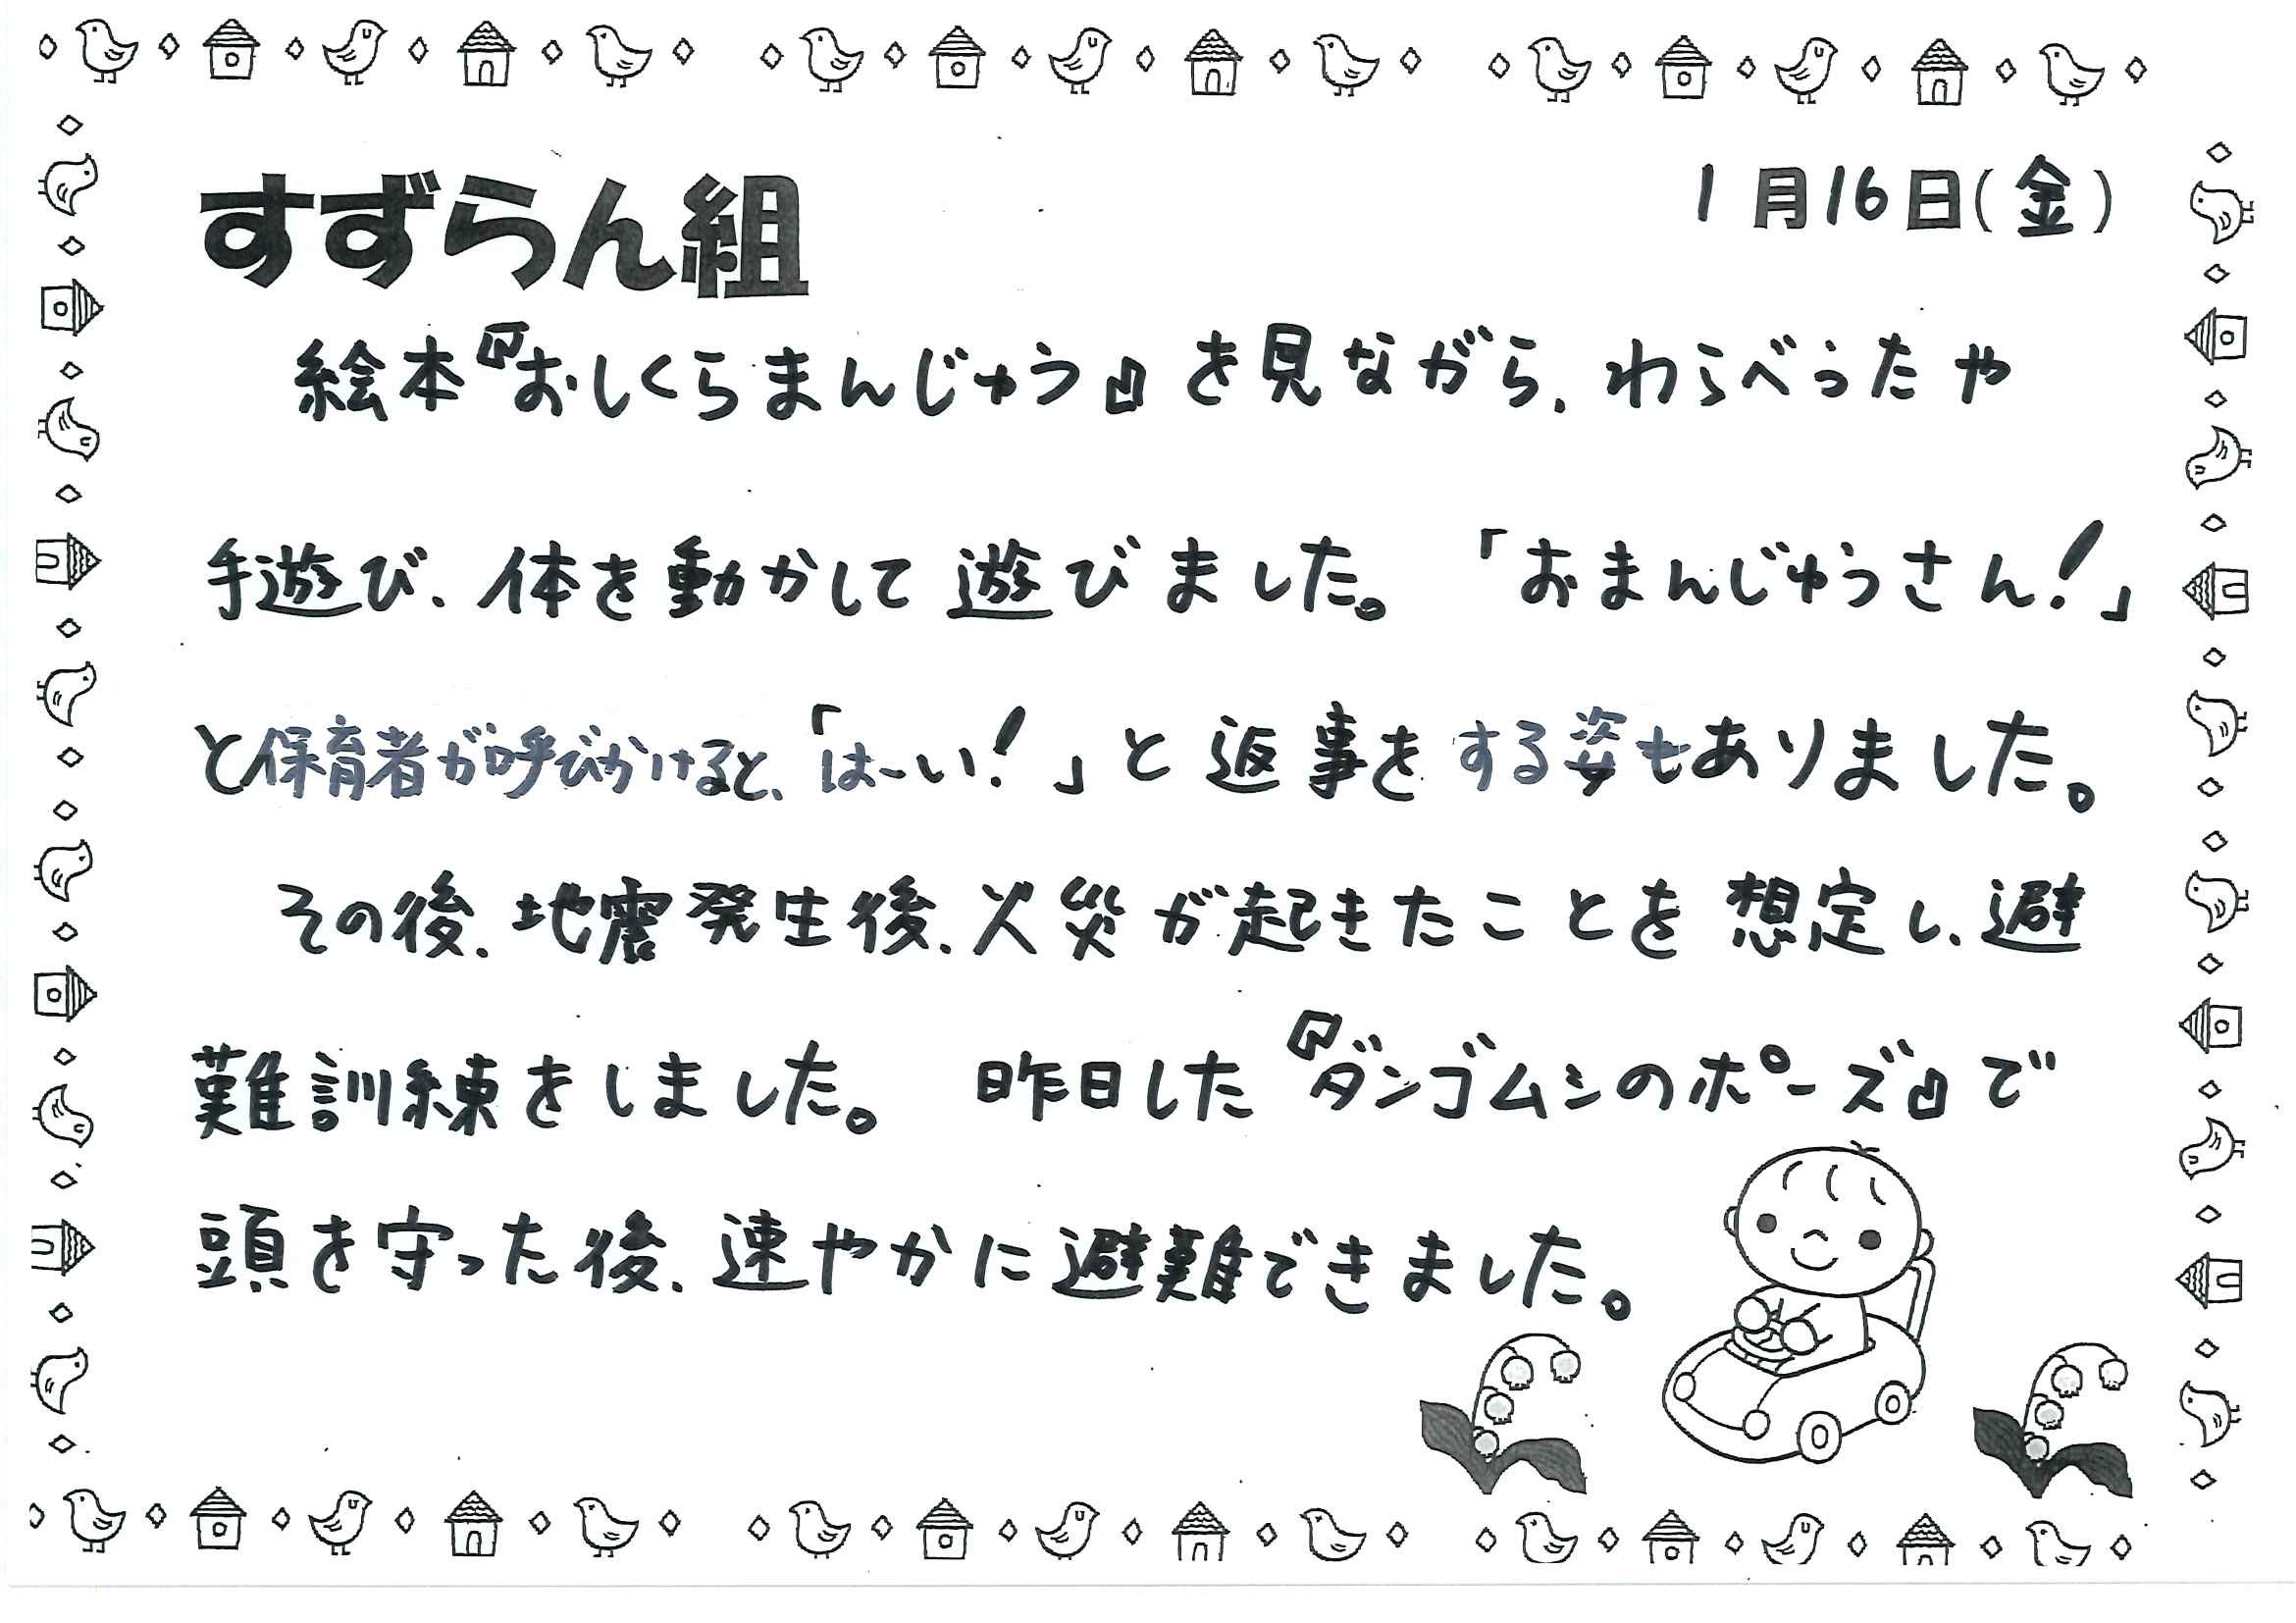 すずらん組
1月16日(金)
絵本『おしくらまんじゅう』を見ながら、わらべうたや
手遊び、体を動かして遊びました。「おまんじゅうさん!」
と保育者が呼びかけると、「はーい!」と返事をする姿もありました。
その後、地震発生後、火災が起きたことを想定し、避
難訓練をしました。 昨日した『ダンゴムシのポーズ』で
頭を守った後、速やかに避難できました。